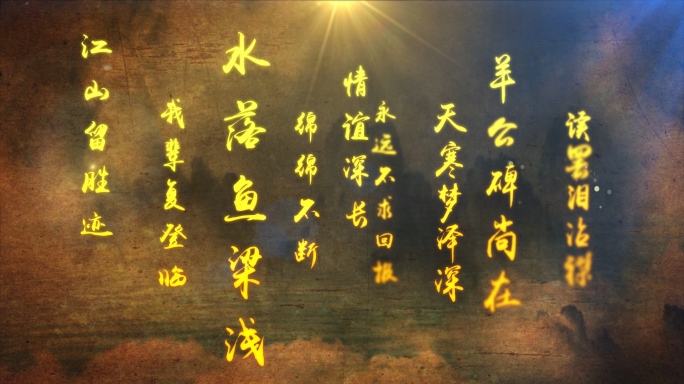 江山留胜迹
我辈复登临
水落鱼梁浅
绵绵不断
情谊深长
永远不求回报
天寒梦泽深
羊公碑尚在
读罢泪沾襟